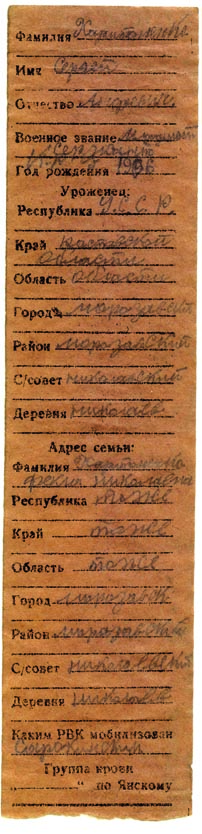 Фамилия Харитоненко
Имя Сергей
Отчество
Военное звание
Год рождения 1906
Уроженец:
Республика У.С.С.Р.
Край
области
Область области
Город морозавск
Район морозавский
С/совет николаевский
Деревня николаев
Адрес семьи:
Фамилия Харитоненко
николаевна
Республика тоже
Край тоже
Область тоже
Город морозавск
Район морозавский
С/совет николаевский
Деревня николаев
Каким РВК мобилизован
Группа крови
„ “ по Янскому